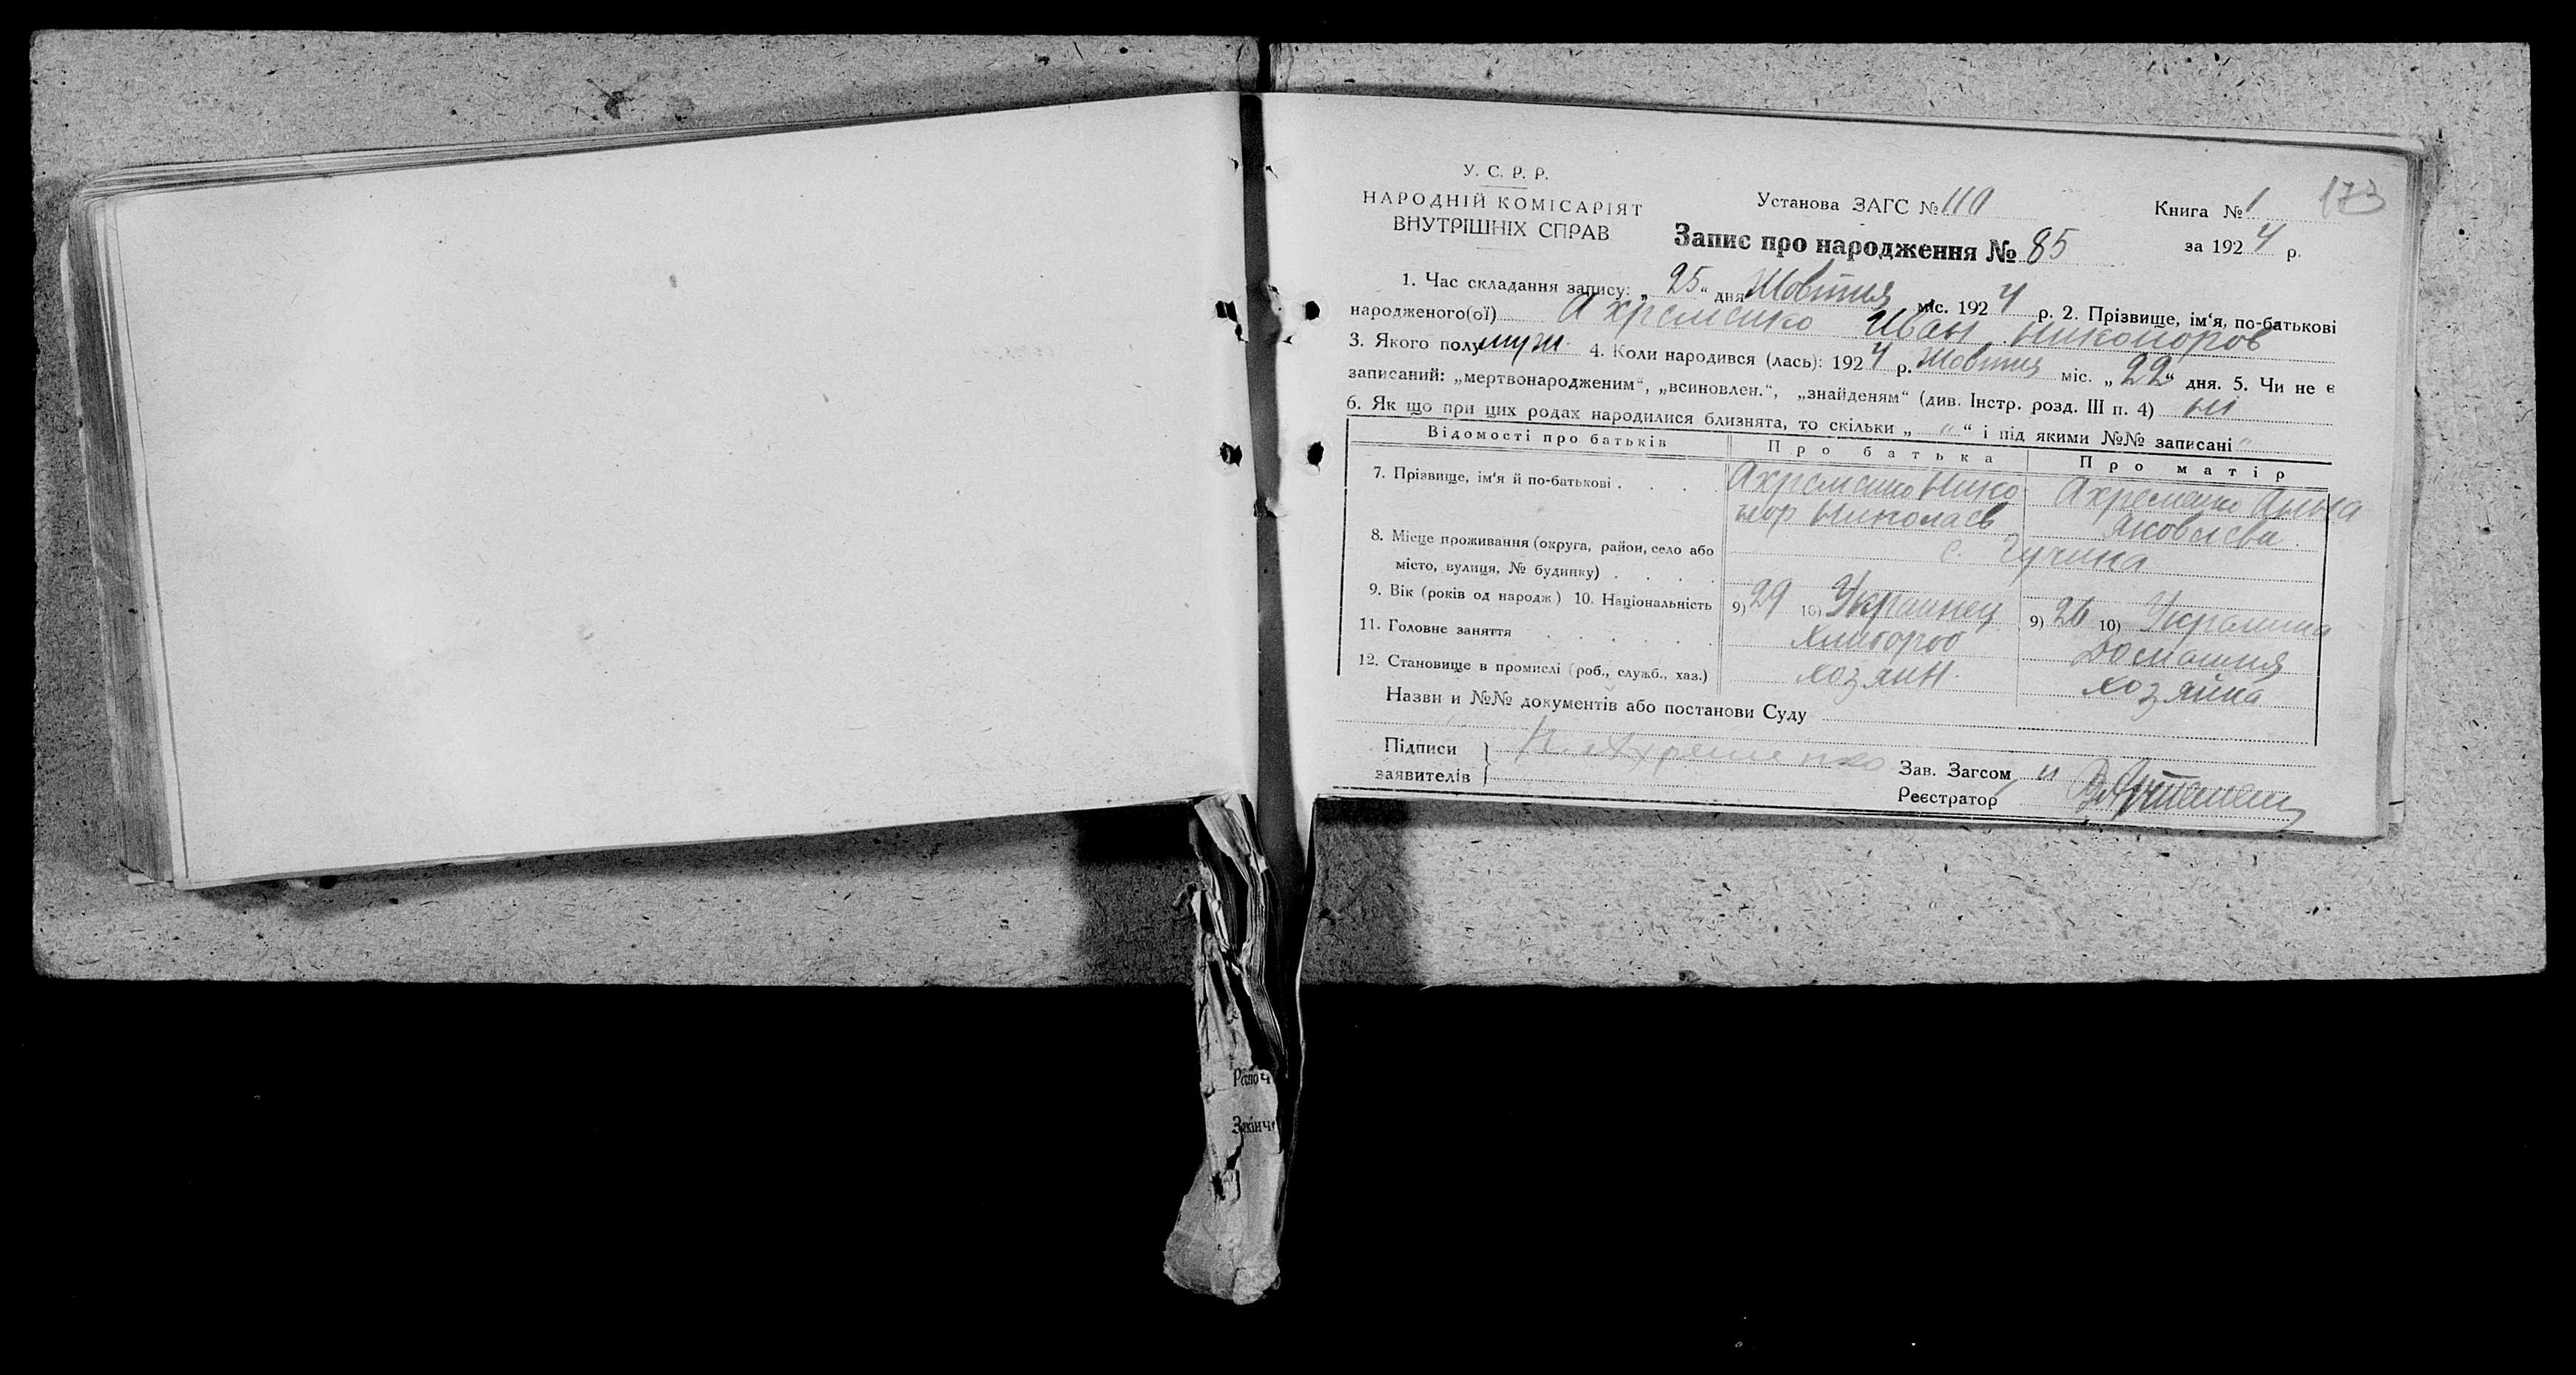 173
У. С. Р. Р.
НАРОДНІЙ КОМІСАРІЯТ
ВНУТРІШНІХ СПРАВ
Установа ЗАГС № 110
Книга № 1
Запис про народження № 85
за 1924 р.
1. Час складання запису: „25“ дня Жовтня міс. 1924 р. 2. Прізвище, ім‘я, по-батькові
народженого(ої) Ахременко Иван Никоноров
3. Якого полу муж. 4. Коли народився (лась): 1924 р. Жовтня міс. „22“ дня. 5. Чи не є
записаний: „мертвонародженим“, „всиновлен.“, „знайденям“ (див. Інстр. розд. III п. 4) ні
6. Як що при цих родах народилися близнята, то скільки „ “ “ і під якими №№ записані “
Відомості про батьків Про батька Про матір
7. Прізвище, ім‘я й по-батькові . . . . Ахременко Нико Ахременко Анна
нор Николаев Яковлева
8. Місце проживання (округа, район, село або
місто, вулиця, № будинку) . . . . с. Гучина
9. Вік (років од народж) 10. Національність 9) 29 10) Украинец 9) 26 10) Украинка
11. Головне заняття . . . . . . Хлибороб Домашня
12. Становище в промислі (роб., служб., хаз.) хозяин. хозяйка
Назви и №№ документів або постанови Суду
Підписи
заявителів
Н. Ахременко
Зав. Загсом и
Реєстратор
Рапоч
Закінч